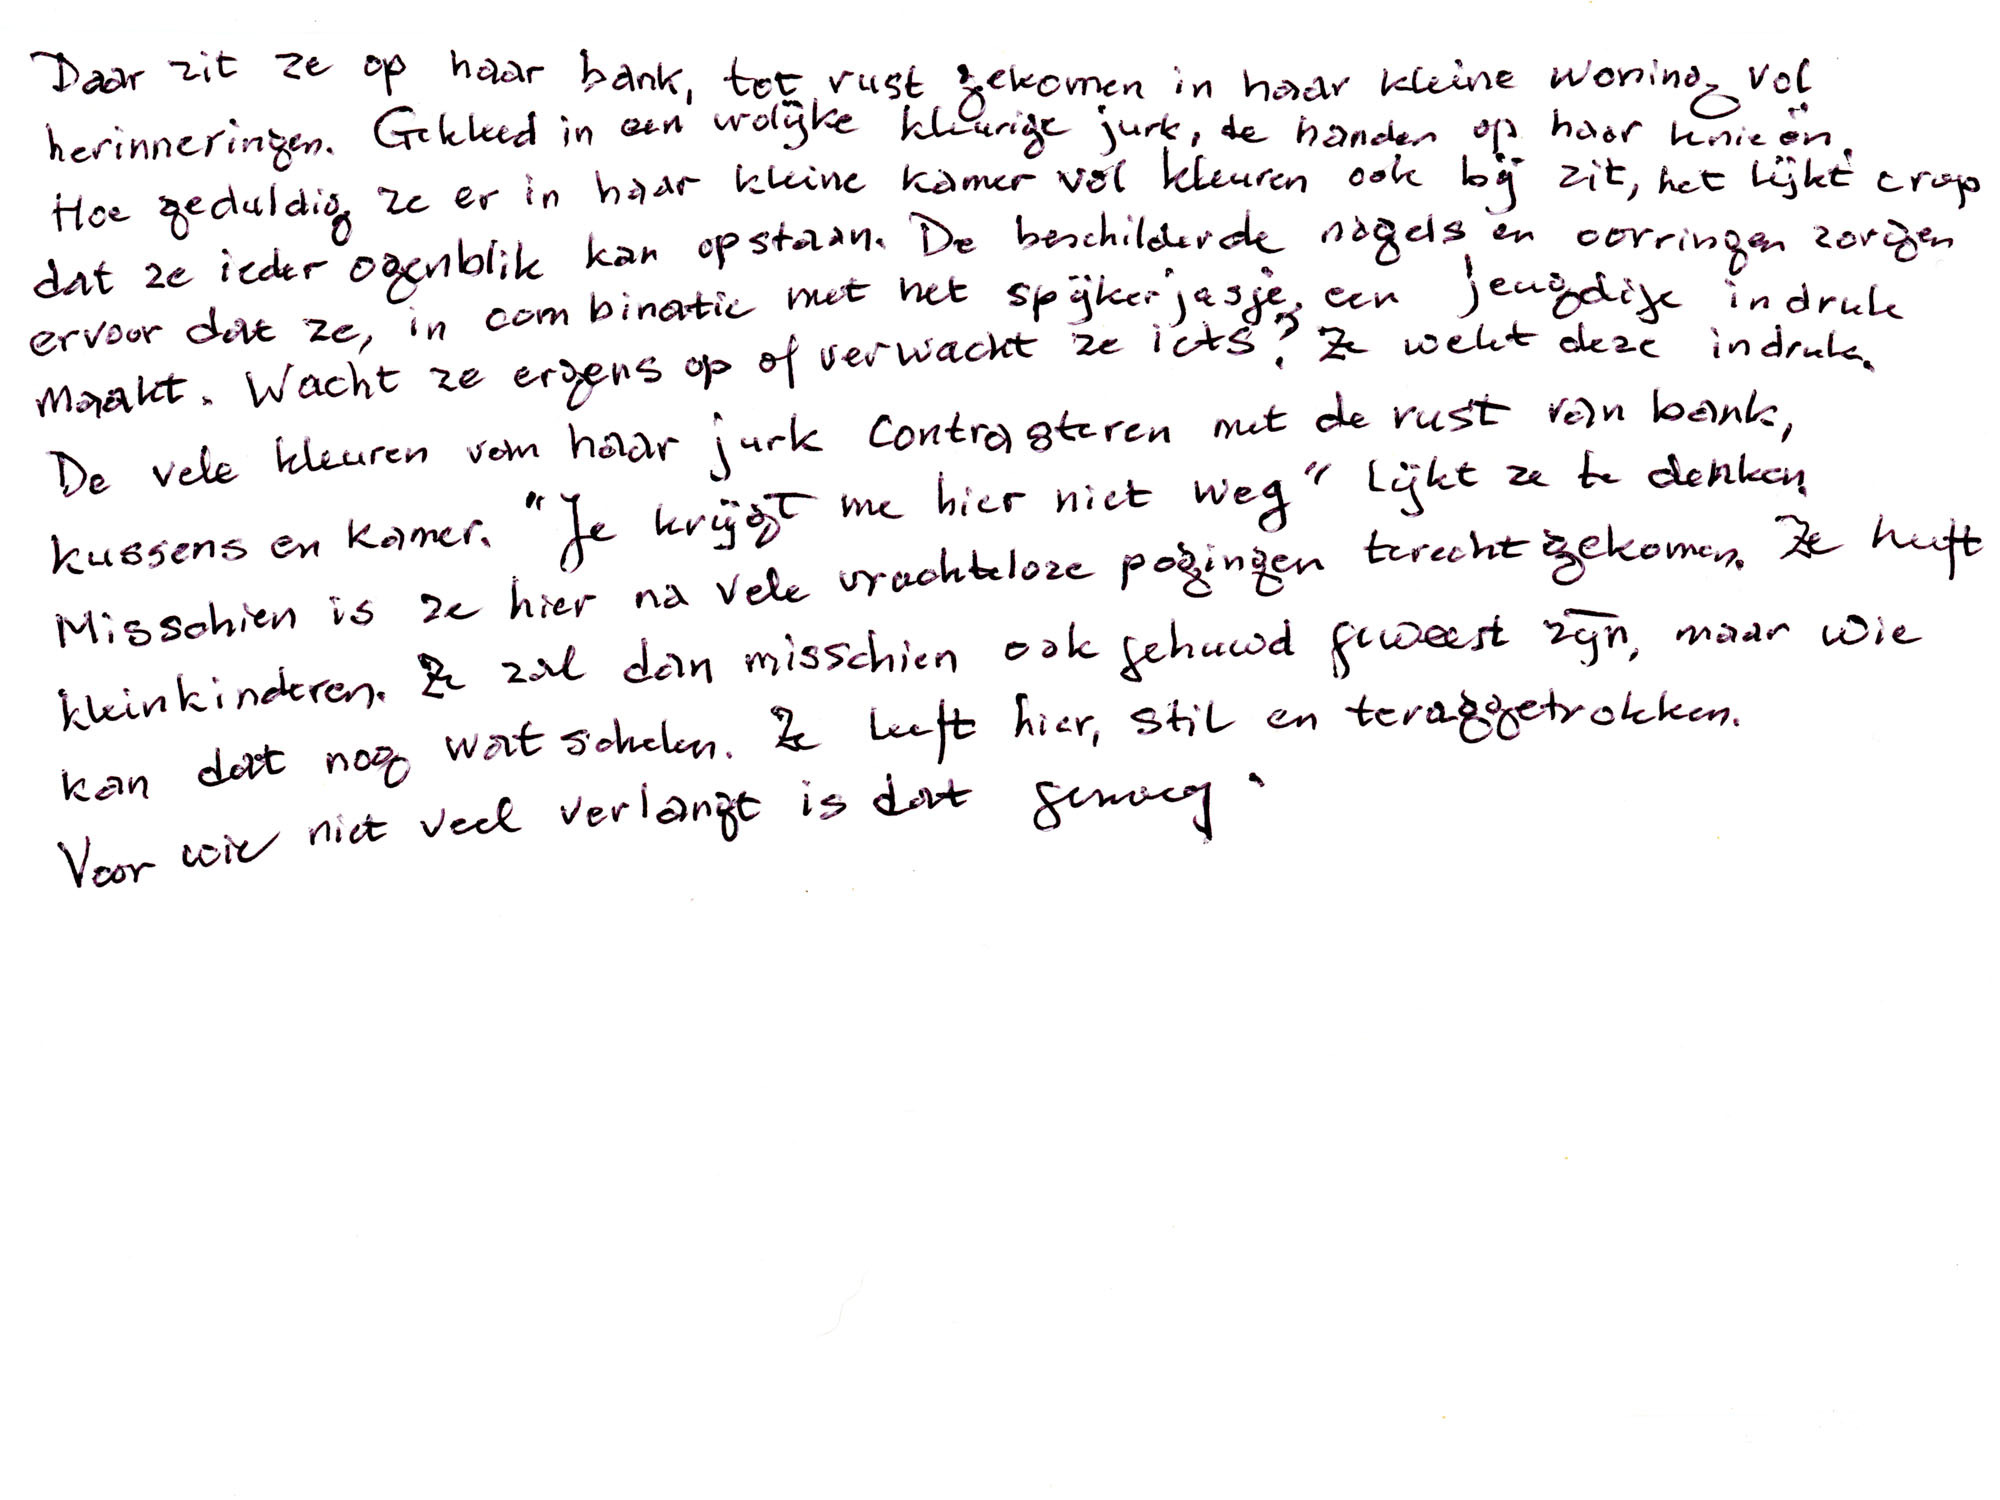 Daar zit ze op haar bank, tot rust gekomen in haar kleine woning vol
herinneringen. Gekleed in een vrolijke kleurige jurk, de handen op haar knieën.
Hoe geduldig ze er in haar kleine kamer vol kleuren ook bij zit, het lijkt erop
dat ze ieder ogenblik kan opstaan. De beschilderde nagels en oorringen zorgen
ervoor dat ze, in combinatie met het spijkerjasje, een jeugdige indruk
maakt. Wacht ze ergens op of verwacht ze iets? Ze wekt deze indruk.
De vele kleuren van haar jurk contrasteren met de rust van bank,
kussens en kamer. "Je krijgt me hier niet weg" lijkt ze te denken.
Misschien is ze hier na vele vruchteloze pogingen terecht gekomen. Ze heeft
kleinkinderen. Ze zal dan misschien ook gehuwd geweest zijn, maar wie
kan dat nog wat schelen. Ze leeft hier, stil en teruggetrokken.
Voor wie niet veel verlangt is dat genoeg.